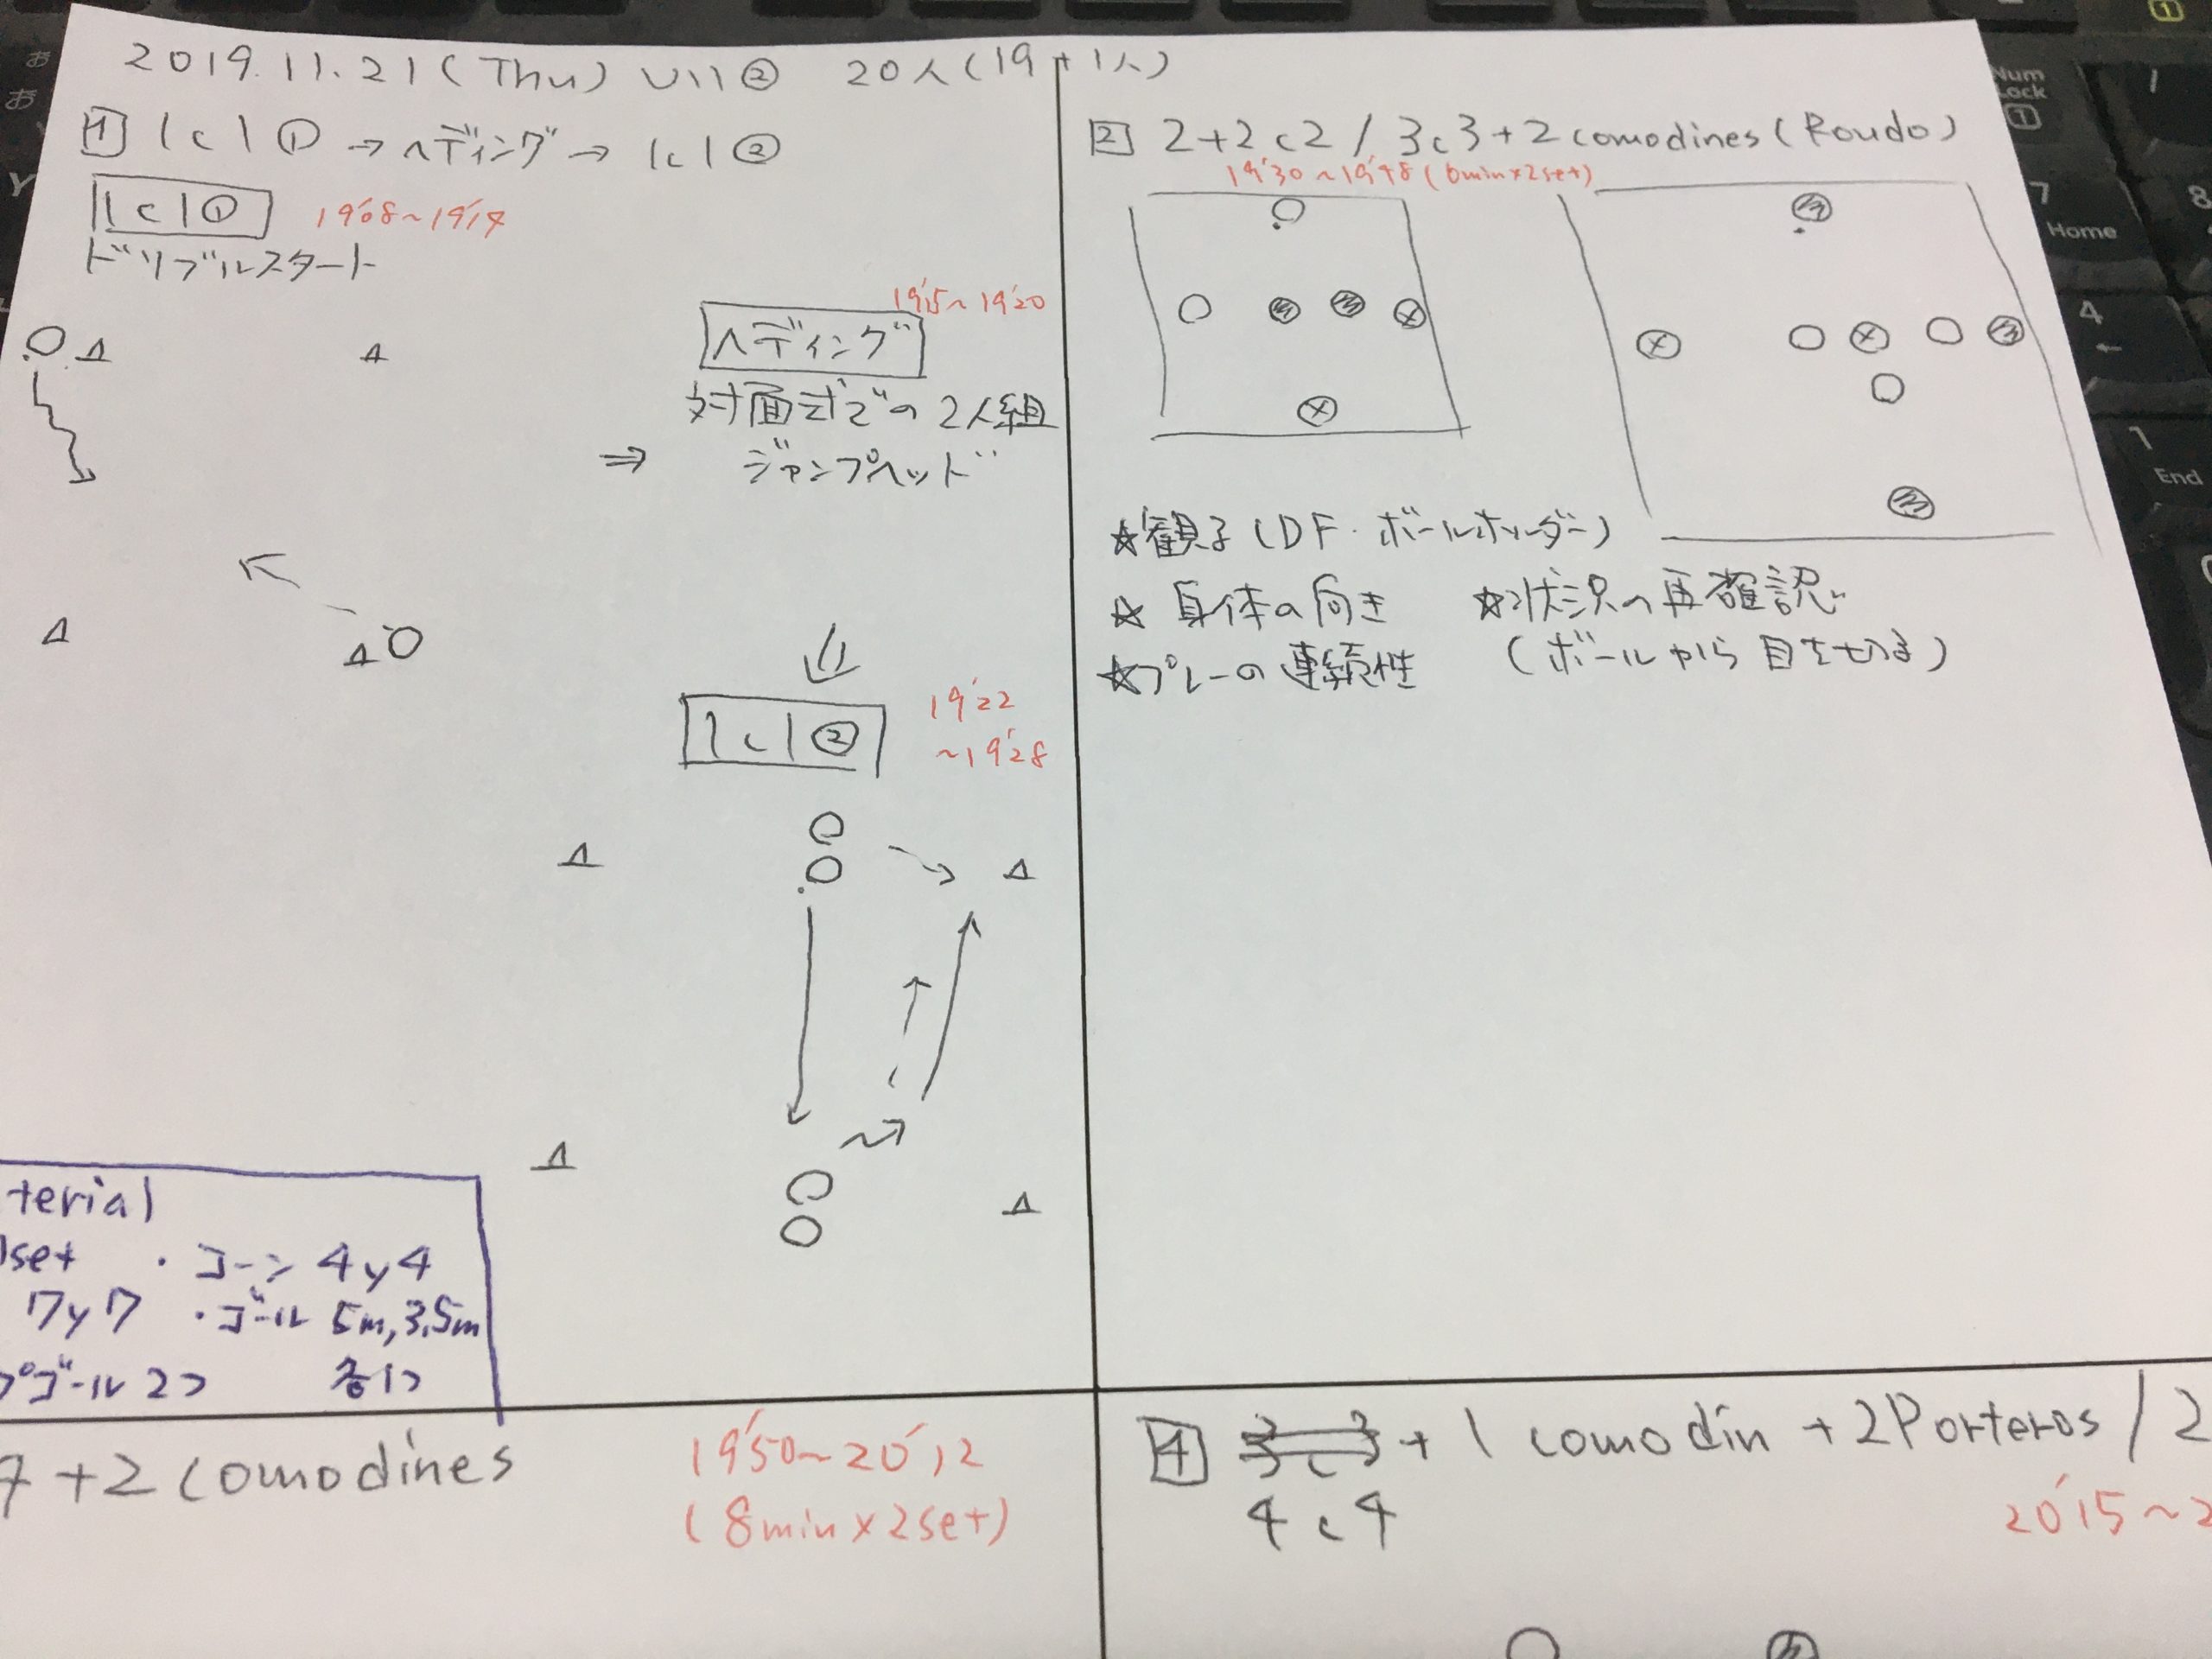 2019.11.21(Thu) U11② 20人(19+1人)
1 1c1① → ヘディング → 1c1②
1c1① 19'08~19'14
ドリブルスタート
19'15~19'20
ヘディング
対面式での2人組
⇒ ジャンプヘッド
1c1② 19'22
~19'28
terial
set ・コーン 4y4
7y7 ・ゴール 5m,3.5m
プゴール2コ 各1コ
2 2+2c2 / 3c3+2comodines(Roudo)
19'30~19'48(6min×2set)
☆観る(DF・ボールホルダー)
☆身体の向き ☆状況の再確認
☆プレーの連続性 (ボールから目を切る)
7+2comodines 19'50~20'12
(8min×2set)
4 3c3+1comodín+2Porteros/2
4c4 20'15~2
Num
Lock
1
7
Home
8
4
←
1
End